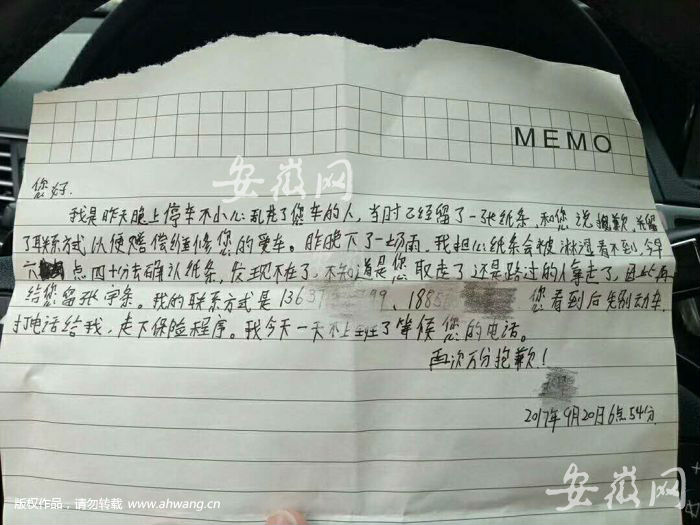 MEMO
安徽网
您好.
我是昨天晚上停车不小心乱走了您车的人，当时已经留了一张纸条，和您说抱歉，
了联系方式以便赔偿维修您的爱车。昨晚下了一场雨，我担心纸条会被淋湿看不到，今早
六点四十分去确认纸条，发现不在了，不知道是您取走了还是路过的人拿走了，因此再
给您留张字条。我的联系方式是13637 99、1885 您看到后先别动车，
打电话给我，走下保险程序。我今天一天不上班了等候您的电话。
再次万分抱歉！
2017年9月20日6点54分.
版权作品，请勿转载 www.ahwang.cn
安徽网